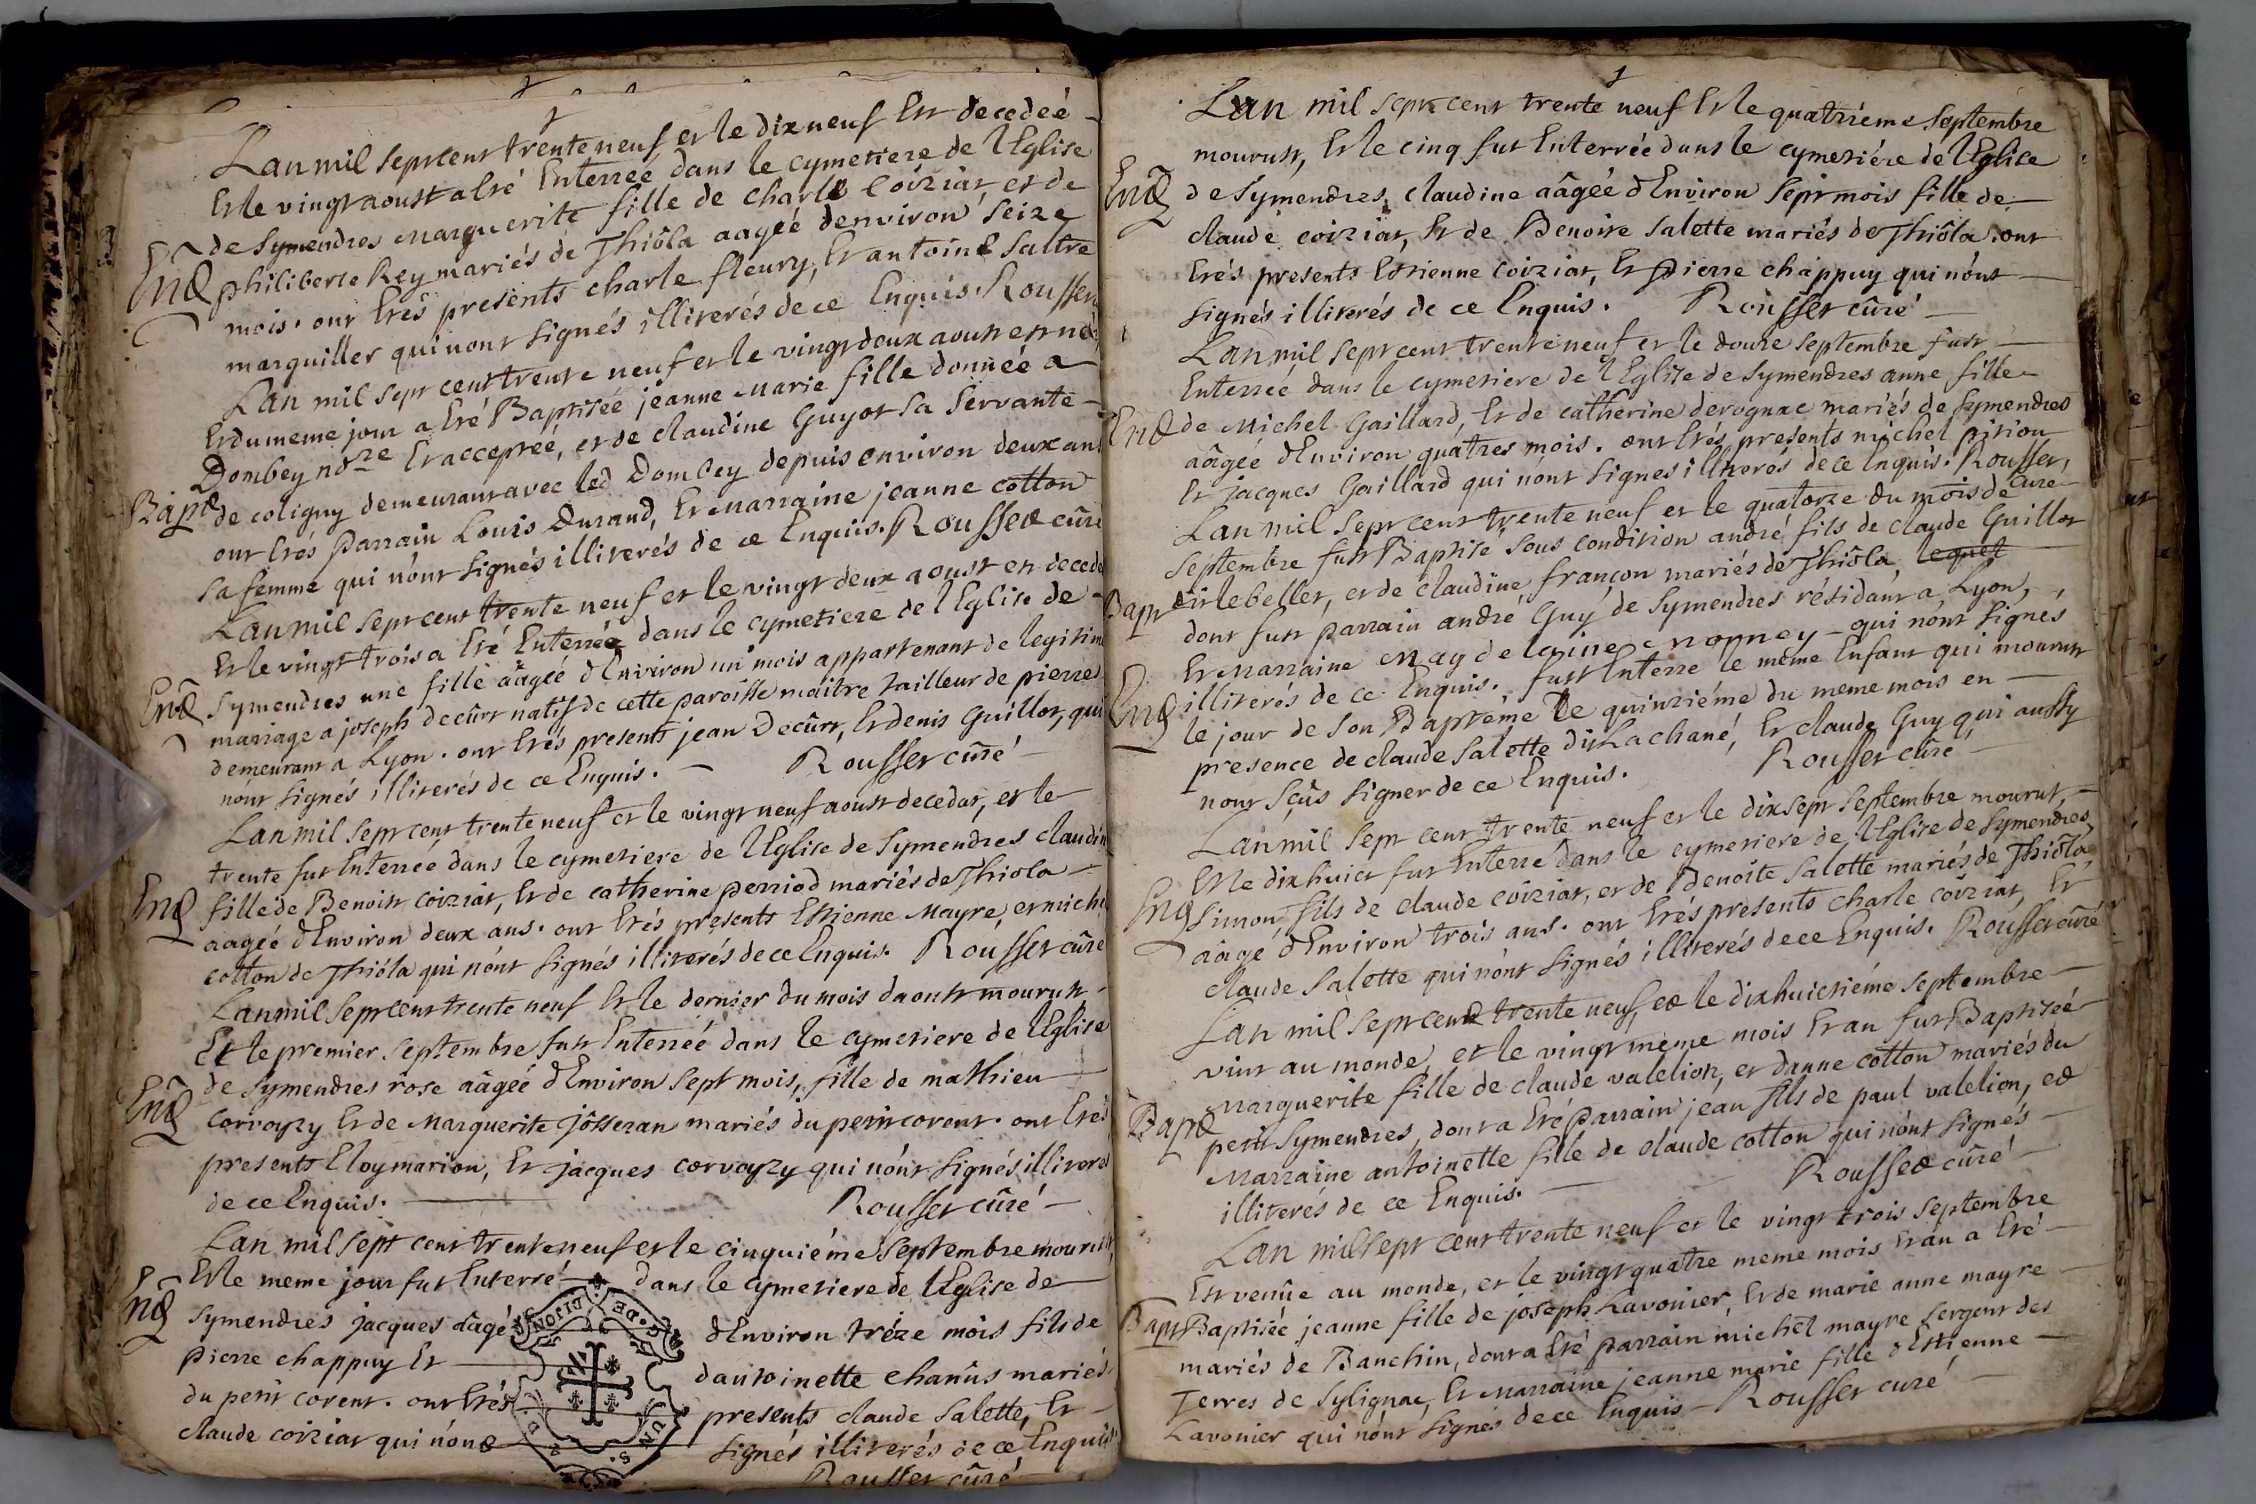 Lan mil sept cent trente neuf et le dix neuf Est decedeé
Et le vingt aoust a Eté Enterreé dans le cymetiere de l'Eglise
de Symendres marguerite fille de charle Coiziat et de
End philiberte Rey mariés de Thiôla aagéé denviron seize
mois. ont Etés presents charle fleury, Et antoine Saltre
marguiller qui n'ont signés illiterés de ce Enquis. Rousset
Lan mil sept cent trente neuf et le vingt deux aoust est neé
Et du meme jour a Eté Baptiséé jeanne marie fille donneé a
Dombey nore Et accepteé, et de claudine Guyot sa servante
Bapt de coligny demeurant avec led Dombey depuis environ deux ans
ont Etés parrain Louis Durand, Et marraine jeanne cotton
sa femme qui n'ont signés illiterés de ce Enquis. Rousset cûré
Lan mil sept cent trente neuf et le vingt deux aoust en decede
Et le vingt trois a Eté Enterreé dans le cymetiere de l'Eglise de
End Symendres une fille aâgeé d'Environ un mois appartenant de legitime
mariage a joseph decûrt natif de cette paroisse maitre tailleur de pierres
demeurant a Lyon. ont Etés presents jean Decûrt, Et denis Guillot, qui
n'ont signés illiterés de ce Enquis. Rousset cûré
Lan mil sept cent trente neuf et le vingt neuf aoust decedat, et le
trente fut Enterreé dans le cymetiere de l'Eglise de Symendres claudin
End fille de Benoist Coiziat, Et de catherine perriod mariés de Thiola
aageé d'Environ deux ans. ont Etés presents Estienne Mayre, et michel
cotton de Thióla qui n'ont signés illiterés de ce Enquis. Rousset cûré
Lan mil sept cent trente neuf Et le dernier du mois daoust mourust
Et le premier septembre fust Enterreé dans le cymetiere de l'Eglise
de Symendres rose aâgeé d'Environ sept mois, fille de mathieu
End corvoyzy Et de Marguerite jôsseran mariés du petit corent. ont Etés
presents Eloy marion, Et jacques corvoyzy qui n'ont signés illiterés
de ce Enquis. Rousset cûré
Lan mil sept cent trente neuf et le cinquiéme septembre mourut
Et le meme jour fut Enterré dans le cymetiere de l'Eglise de
End Symendres jacques aâgé d'Environ tréze mois fils de
pierre chappuy Et dantoinette chanûs mariés
du petit corent. ont Etés presents claude Salette, Et
claude coiziat qui n'ont signés illiterés de ce Enquis
Rousset cûré
G. DE DIJON
Lan mil sept cent trente neuf Et le quatriéme septembre
mourust, Et le cinq fut Enterréé dans le cymetiére de l'Eglise
End de Symendres, claudine aâgéé d'Environ sept mois fille de
claude coiziat, Et de Benoite Salette mariés de Thiôla. ont
Etés presents Estienne coiziat, Et pierre chappuy qui n'ont
signés illiterés de ce Enquis. Rousset cûré
Lan mil sept cent trente neuf et le douze septembre fust
Enterreé dans le cymetiere de l'Eglise de Symendres anne fille
End de Michel Gaillard, Et de catherine derognac mariés de Symendres
aâgeé d'Environ quâtres mois. ont Etés presents michel pition
Et jacques Gaillard qui n'ont signes illiterés de ce Enquis. Rousset,
curé
Lan mil sept cent trente neuf et le quatorze du mois de
septembre fust Baptisé sous condition andré fils de claude Guillot
Bapt dit lebeller, et de claudine françon mariés de Thiôla, lequel
dont fust parrain andré Guy de Symendres résidant a Lyon,
Et marraine magdelaine nonney qui n'ont signés
End illiterés de ce Enquis. fust Enterre le même Enfant qui mourust
le jour de son Baptéme Le quinziéme du meme mois en
presence de claude Salette dit Lachané, Et claude Guy qui aussy
n'ont sçûs signer de ce Enquis. Rousset cûré
Lan mil sept cent trente neuf et le dix sept septembre mourut,
Et le dix huict fut Enterré dans le cymetiere de l'Eglise de Symendres
End Simon fils de claude coiziat, et de Benoite Salette mariés de Thiôla
aâgé d'Environ trois ans. ont Etés presents charle coiziat, Et
claude Salette qui n'ont signés illiterés de ce Enquis. Rousset cûré
Lan mil sept cent trente neuf, et le dix huictiéme septembre
vint au monde, et le vingt même mois Et an fut Baptiséé
Marguerite fille de claude valelion, et danne cotton mariés du
Bapt petit Symendres, dont a Eté parrain jean fils de paul valelion, et
Marraine antoinette fille de claude cotton qui n'ont signés
illiterés de ce Enquis. Rousset cûré
Lan mil sept cent trente neuf et le vingt trois septembre
Est venûe au monde, et le vingt quatre meme mois Et an a Eté
Bapt Baptiséé jeanne fille de joseph Lavonier, Et de marie anne mayre
mariés de Banchin, dont a Eté parrain michel mayre sergent des
Terres de Sylignac, Et marraine jeanne marie fille d'Estienne
Lavonier qui n'ont signés de ce Enquis Rousset curé